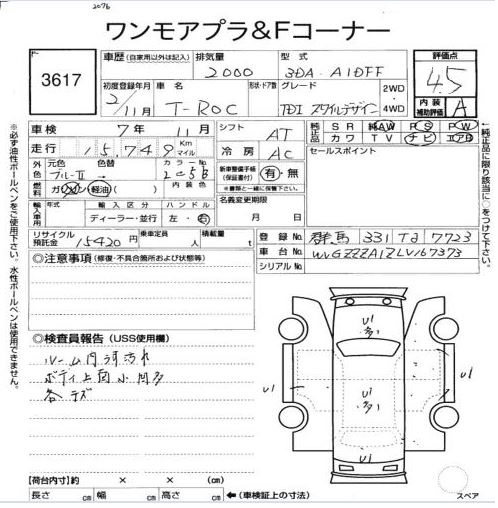 2076
ワンモアプラ&Fコーナー
3617
車歴 (自家用以外は記入)
排気量 2000
型式 3DA-A1DFF
評価点 4.5
内装補助評価 A
初度登録年月 2/11月
車名 T-ROC
形状・ドア数
グレード TDI スタイルデザイン
2WD 4WD
車検 7年 11月
シフト AT
純正品 SR 純AW PS PW
カワ TV ナビ エアB
走行 15,749 Km マイル
冷房 AC
セールスポイント
外色 元色 ブルーII → 色替
カラーNo. 2C5B
内装色
新車整備手帳(保証書付) 有・無
※書類と一緒に保管下さい。
燃料 ガソリン 軽油 ( )
輸入車用 年式 輸入区分 ハンドル
ディーラー・並行 左・右
名義変更期限
月 日
リサイクル預託金 15420円
乗定員 人
積載量 t
登録No. 群馬 331 7723
車台No. WVGZZZA1ZLV167373
シリアルNo.
◎注意事項 (修復・不具合箇所および状態等)
◎検査員報告 (USS使用欄)
ルーム内汚れ
ボディ上面小 多
各キズ
U1
多
U1
U1
多
U1
U1
【荷台内寸】約 × × (cm)
長さ cm 幅 cm 高さ cm ←(車検証上の寸法)
スペア
※必ず油性ボールペンをご使用下さい。水性ボールペンは使用できません。
←純正品に限り該当に○をつけて下さい。